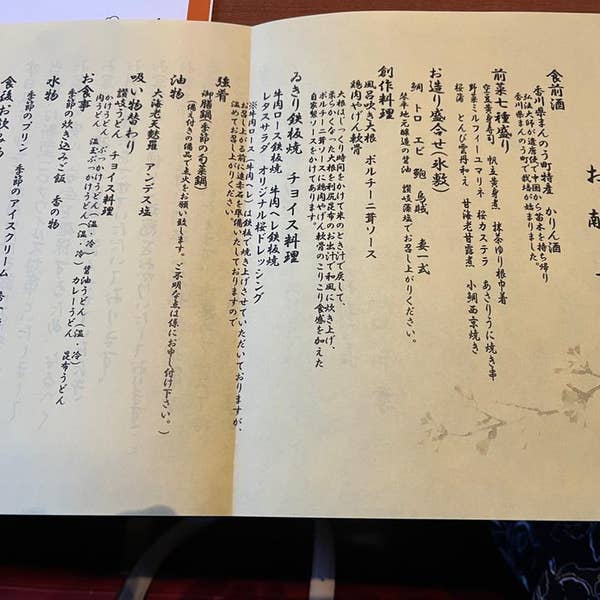 お献
食前酒
香川県まんのう町特産 かりん酒
弘法大師が遣唐使で中国から苗木を持ち帰り
香川県まんのう町で栽培が始まりました。
前菜七種盛り
空豆黄身寿司 帆立黄身煮 抹茶ゆり根巾着
野菜ミルフィーユマリネ 桜カステラ あさりうに焼き串
桜海 とんび雲丹和え 甘海老甘露煮 小鯛西京焼き
お造り盛合せ(氷敷)
鯛 トロ エビ 鮑 烏賊 妻一式
琴平地元醸造の醤油 讃岐藻塩でお召し上がりください。
創作料理
風呂吹き大根 ポルチーニ茸ソース
鶏肉やげん軟骨
大根はじっくり時間をかけて米のとぎ汁で戻して、
柔らかくなった大根を利尻昆布のお出汁で和風に炊き上げ、
ポルチーニ茸をベースに鶏肉やげん軟骨のこりこり食感を加えた
自家製ソースをかけてあります。
ゐきり鉄板焼 チョイス料理
牛肉ロース鉄板焼 牛肉ヘレ鉄板焼
レタスサラダ オリジナル桜ドレッシング
※牛肉ロース(牛肉ヘレ)は鉄板で焼き上げさせていただいておりますが、
お召し上がる前に遠赤石も準備いたしておりますので
温めてお召し上がりください。
強肴
御膳鍋(季節の旬菜鍋)
(備え付きの備品で点火をお願い致します。ご不明な点は係にお申し付け下さい。)
油物
大海老天麩羅 アンデス塩
吸い物替わり
讃岐うどん チョイス料理
かけうどん ぶっかけうどん(温・冷) 醤油うどん(温・冷)
肉うどん 温玉ぶっかけうどん(温・冷) カレーうどん 昆布うどん
お食事
季節の炊き込みご飯 香の物
水物
季節のプリン 季節のアイスクリーム
食後お飲み